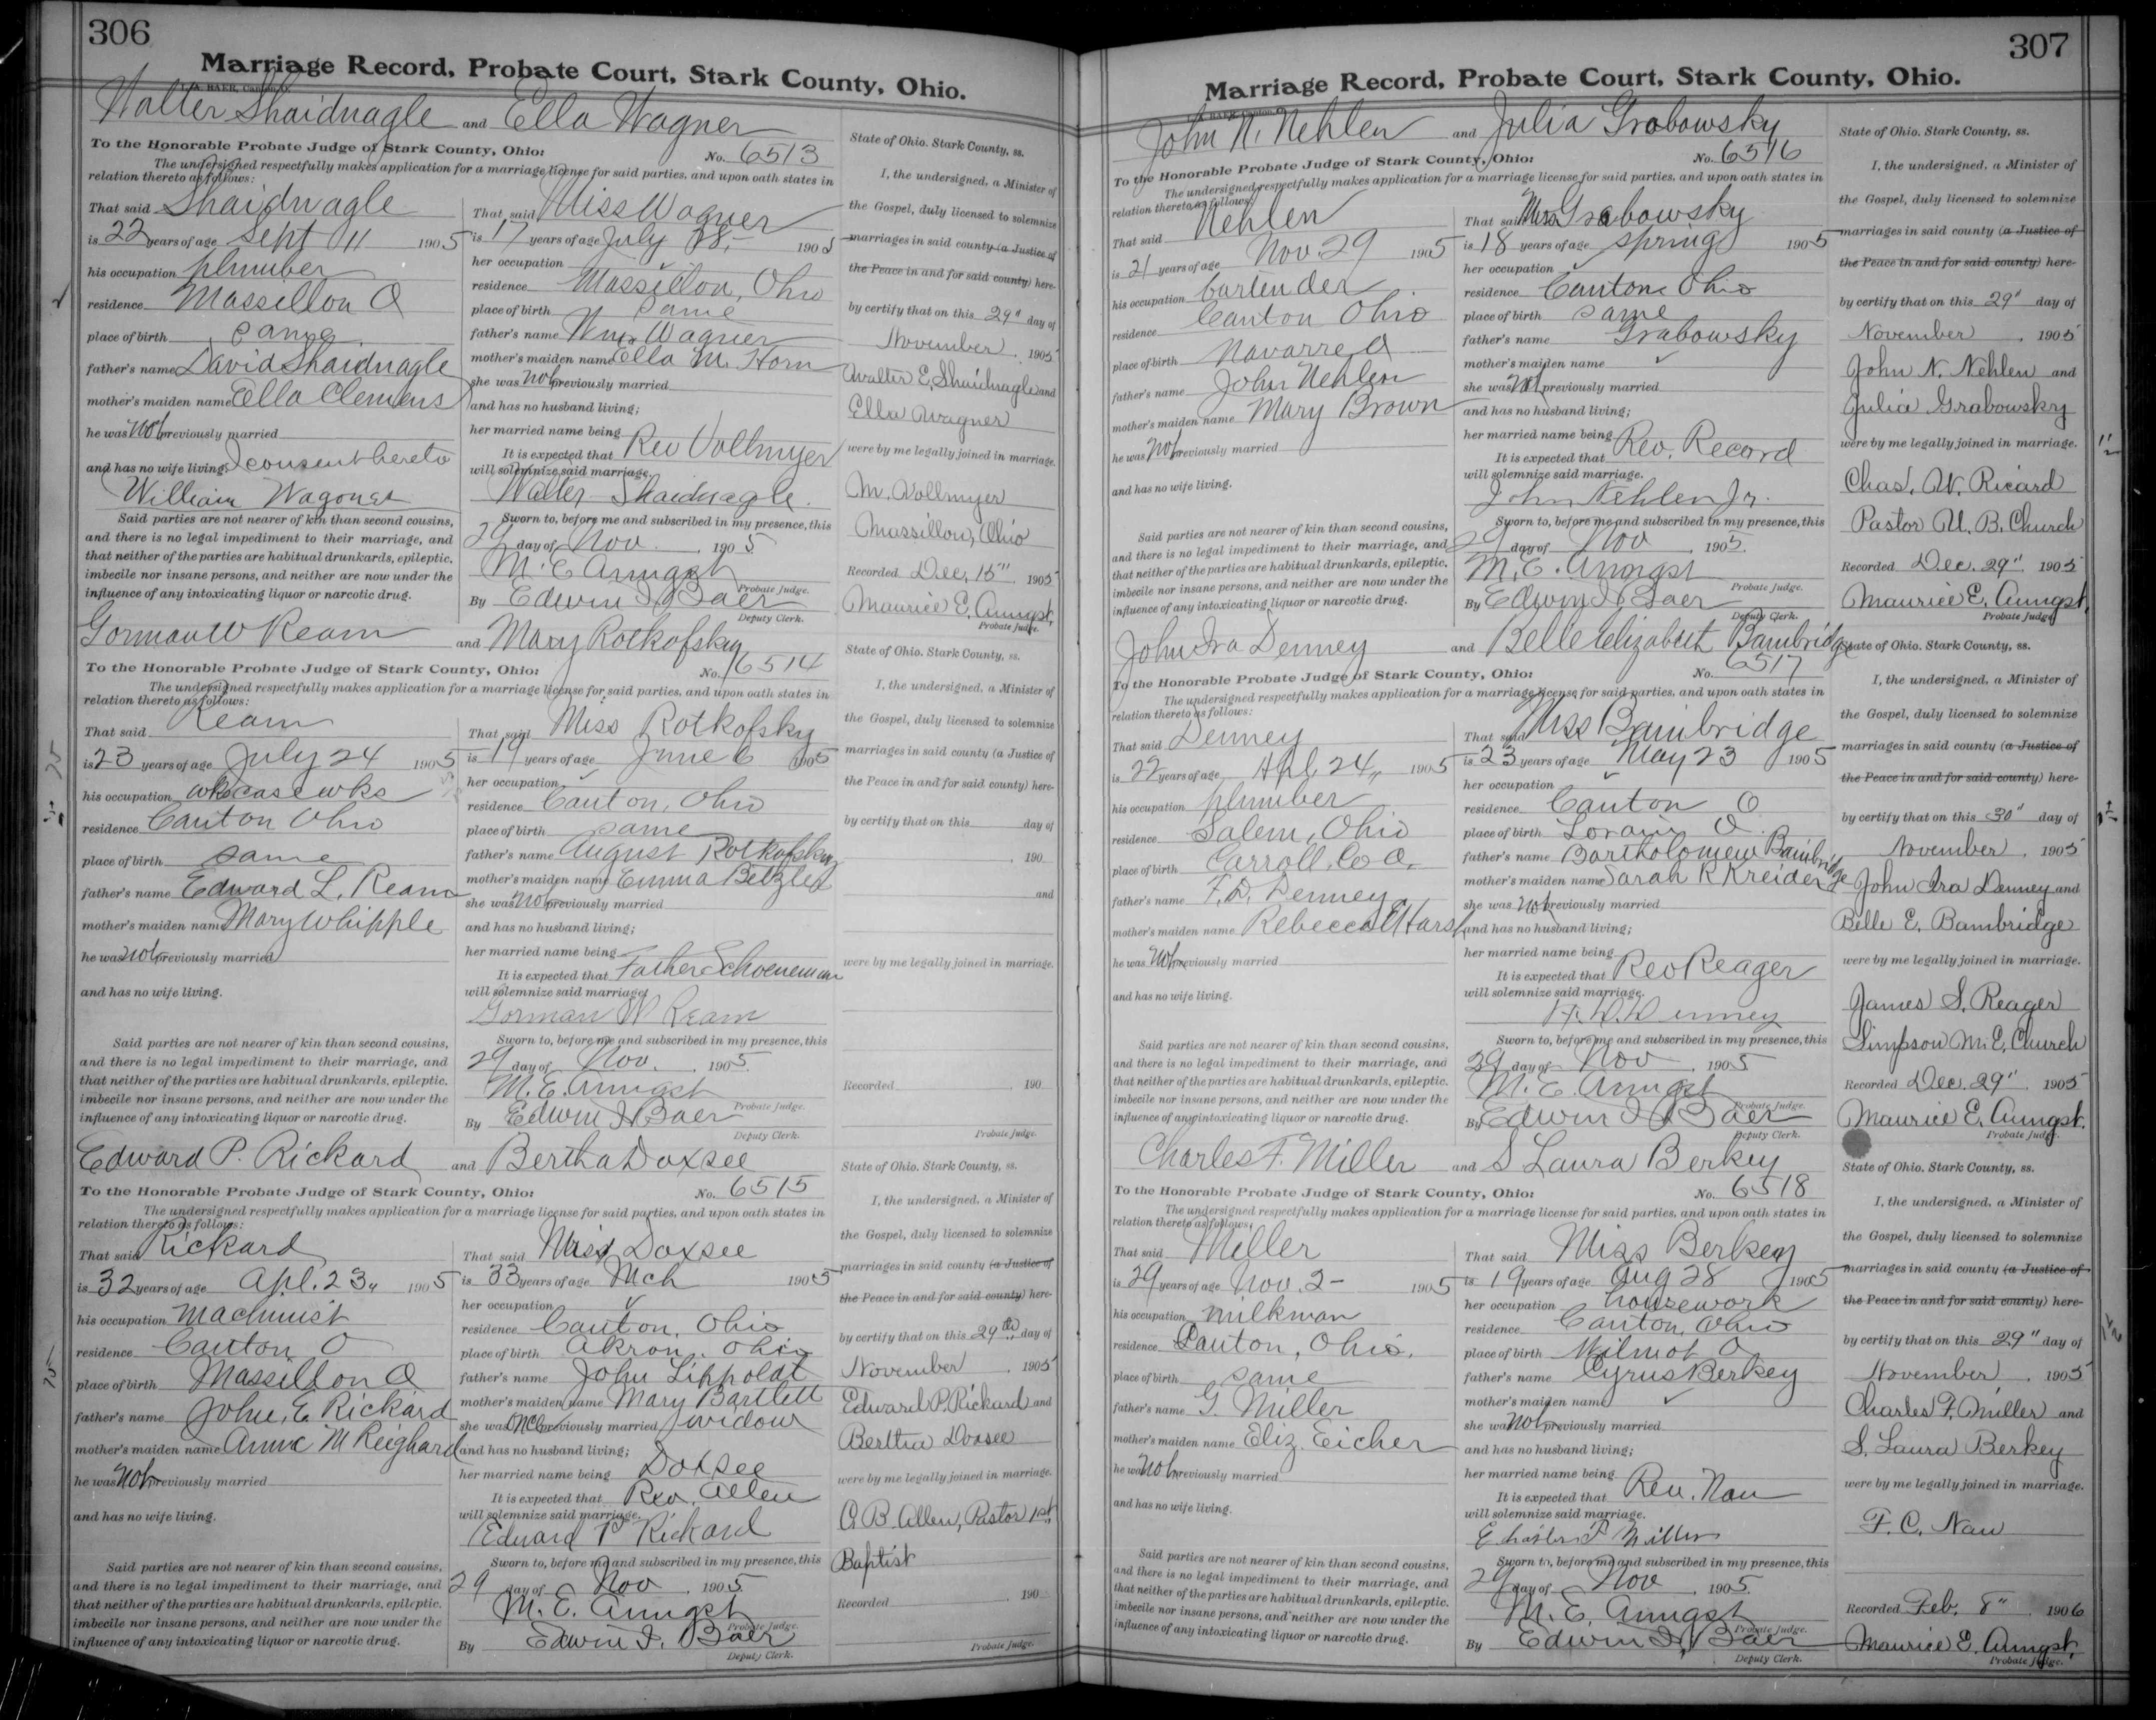 306
Marriage Record, Probate Court, Stark County, Ohio.
Walter Shaidnagle and Ella Wagner
To the Honorable Probate Judge of Stark County, Ohio: No. 6513
The undersigned respectfully makes application for a marriage license for said parties, and upon oath states in
relation thereto as follows:
That said Shaidnagle
is 22 years of age Sept 11 1905
his occupation plumber
residence Massillon O
place of birth same
father's name David Shaidnagle
mother's maiden name Ella Clemens
he was not previously married
and has no wife living. I consent hereto
William Wagoner
Said parties are not nearer of kin than second cousins,
and there is no legal impediment to their marriage, and
that neither of the parties are habitual drunkards, epileptic,
imbecile nor insane persons, and neither are now under the
influence of any intoxicating liquor or narcotic drug.
That said Miss Wagner
is 17 years of age July 28, 1905
her occupation
residence Massillon, Ohio
place of birth same
father's name Wm. Wagner
mother's maiden name Ella M. Horn
she was not previously married
and has no husband living;
her married name being
It is expected that Rev Vollmyer
will solemnize said marriage.
Walter Shaidnagle.
Sworn to, before me and subscribed in my presence, this
29 day of Nov. 1905
M. E. Aungst
Probate Judge.
By Edwin J. Baer
Deputy Clerk.
State of Ohio. Stark County, ss.
I, the undersigned, a Minister of
the Gospel, duly licensed to solemnize
marriages in said county (a Justice of
the Peace in and for said county) here-
by certify that on this 29" day of
November 1905
Walter E. Shaidnagle and
Ella Wagner
were by me legally joined in marriage.
M. Vollmyer
Massillon, Ohio
Recorded Dec. 15" 1905
Maurice E. Aungst,
Probate Judge.
Gorman W Ream and Mary Rotkofsky
To the Honorable Probate Judge of Stark County, Ohio: No. 6514
The undersigned respectfully makes application for a marriage license for said parties, and upon oath states in
relation thereto as follows:
That said Ream
is 23 years of age July 24 1905
his occupation wks case wks
residence Canton Ohio
place of birth same
father's name Edward L. Ream
mother's maiden name Mary Whipple
he was not previously married
and has no wife living.
Said parties are not nearer of kin than second cousins,
and there is no legal impediment to their marriage, and
that neither of the parties are habitual drunkards, epileptic,
imbecile nor insane persons, and neither are now under the
influence of any intoxicating liquor or narcotic drug.
That said Miss Rotkofsky
is 19 years of age June 6 1905
her occupation
residence Canton, Ohio
place of birth same
father's name August Rotkofsky
mother's maiden name Emma
she was not previously married
and has no husband living;
her married name being
It is expected that Father Schoeneman
will solemnize said marriage.
Gorman W Ream
Sworn to, before me and subscribed in my presence, this
29 day of Nov. 1905
M. E. Aungst
Probate Judge.
By Edwin J. Baer
Deputy Clerk.
State of Ohio. Stark County, ss.
I, the undersigned, a Minister of
the Gospel, duly licensed to solemnize
marriages in said county (a Justice of
the Peace in and for said county) here-
by certify that on this day of
, 190
and
were by me legally joined in marriage.
Recorded , 190
Probate Judge.
Edward P. Rickard and Bertha Doxsee
To the Honorable Probate Judge of Stark County, Ohio: No. 6515
The undersigned respectfully makes application for a marriage license for said parties, and upon oath states in
relation thereto as follows:
That said Rickard
is 32 years of age Apl. 23, 1905
his occupation Machinist
residence Canton O
place of birth Massillon O
father's name John, E Rickard
mother's maiden name Anna M Reighard
he was not previously married
and has no wife living.
Said parties are not nearer of kin than second cousins,
and there is no legal impediment to their marriage, and
that neither of the parties are habitual drunkards, epileptic,
imbecile nor insane persons, and neither are now under the
influence of any intoxicating liquor or narcotic drug.
That said Miss Doxsee
is 33 years of age Mch 1905
her occupation
residence Canton, Ohio
place of birth Akron, Ohio
father's name John Lippoldt
mother's maiden name Mary Bartlett
she was previously married widow
and has no husband living;
her married name being Doxsee
It is expected that Rev. Allen
will solemnize said marriage.
Edward P Rickard
Sworn to, before me and subscribed in my presence, this
29 day of Nov. 1905
M. E. Aungst
Probate Judge.
By Edwin J. Baer
Deputy Clerk.
State of Ohio. Stark County, ss.
I, the undersigned, a Minister of
the Gospel, duly licensed to solemnize
marriages in said county (a Justice of
the Peace in and for said county) here-
by certify that on this 29th day of
November 1905
Edward P. Rickard and
Bertha Doxsee
were by me legally joined in marriage.
C. B. Allen, Pastor 1st
Baptist
Recorded 190
Probate Judge.
307
Marriage Record, Probate Court, Stark County, Ohio.
John N. Nehlen and Julia Grabowsky
To the Honorable Probate Judge of Stark County, Ohio: No. 6516
The undersigned respectfully makes application for a marriage license for said parties, and upon oath states in
relation thereto as follows:
That said Nehlen
is 21 years of age Nov 29 1905
his occupation bartender
residence Canton Ohio
place of birth Navarre O
father's name John Nehlen
mother's maiden name Mary Brown
he was not previously married
and has no wife living.
Said parties are not nearer of kin than second cousins,
and there is no legal impediment to their marriage, and
that neither of the parties are habitual drunkards, epileptic,
imbecile nor insane persons, and neither are now under the
influence of any intoxicating liquor or narcotic drug.
That said Miss Grabowsky
is 18 years of age spring 1905
her occupation
residence Canton Ohio
place of birth same
father's name Grabowsky
mother's maiden name
she was not previously married
and has no husband living;
her married name being
It is expected that Rev. Record
will solemnize said marriage.
John Nehlen Jr.
Sworn to, before me and subscribed in my presence, this
29 day of Nov 1905.
M. E. Aungst
Probate Judge.
By Edwin J. Baer
Deputy Clerk.
State of Ohio. Stark County, ss.
I, the undersigned, a Minister of
the Gospel, duly licensed to solemnize
marriages in said county (a Justice of
the Peace in and for said county) here-
by certify that on this 29" day of
November 1905
John N. Nehlen and
Julia Grabowsky
were by me legally joined in marriage.
Chas. W. Ricard
Pastor U. B. Church
Recorded Dec. 29" 1905
Maurice E. Aungst,
Probate Judge.
John Ira Denney and Belle Elizabeth Bambridge
To the Honorable Probate Judge of Stark County, Ohio: No. 6517
The undersigned respectfully makes application for a marriage license for said parties, and upon oath states in
relation thereto as follows:
That said Denney
is 22 years of age Apl. 24, 1905
his occupation plumber
residence Salem, Ohio
place of birth Carroll Co O.
father's name F. D. Denney
mother's maiden name Rebecca E Harsh
he was not previously married
and has no wife living.
Said parties are not nearer of kin than second cousins,
and there is no legal impediment to their marriage, and
that neither of the parties are habitual drunkards, epileptic,
imbecile nor insane persons, and neither are now under the
influence of any intoxicating liquor or narcotic drug.
That said Miss Bambridge
is 23 years of age May 23 1905
her occupation
residence Canton O
place of birth Lorain O.
father's name Bartholomew Bambridge
mother's maiden name Sarah R Kreider
she was not previously married
and has no husband living;
her married name being
It is expected that Rev Reager
will solemnize said marriage.
Denney
Sworn to, before me and subscribed in my presence, this
29 day of Nov 1905
M. E. Aungst
Probate Judge.
By Edwin J. Baer
Deputy Clerk.
State of Ohio. Stark County, ss.
I, the undersigned, a Minister of
the Gospel, duly licensed to solemnize
marriages in said county (a Justice of
the Peace in and for said county) here-
by certify that on this 30" day of
November 1905
John Ira Denney and
Belle E. Bambridge
were by me legally joined in marriage.
James S. Reager
Simpson M. E. Church
Recorded Dec. 29" 1905
Maurice E. Aungst.
Probate Judge.
Charles F. Miller and S Laura Berkey
To the Honorable Probate Judge of Stark County, Ohio: No. 6518
The undersigned respectfully makes application for a marriage license for said parties, and upon oath states in
relation thereto as follows:
That said Miller
is 29 years of age Nov. 2 - 1905
his occupation milkman
residence Canton, Ohio.
place of birth same
father's name G. Miller
mother's maiden name Eliz. Eicher
he was not previously married
and has no wife living.
Said parties are not nearer of kin than second cousins,
and there is no legal impediment to their marriage, and
that neither of the parties are habitual drunkards, epileptic,
imbecile nor insane persons, and neither are now under the
influence of any intoxicating liquor or narcotic drug.
That said Miss Berkey
is 19 years of age Aug 28 1905
her occupation housework
residence Canton, Ohio
place of birth Wilmot O
father's name Cyrus Berkey
mother's maiden name
she was not previously married
and has no husband living;
her married name being
It is expected that Rev. Nau
will solemnize said marriage.
Charles F Miller
Sworn to, before me and subscribed in my presence, this
29 day of Nov 1905.
M. E. Aungst
Probate Judge.
By Edwin J. Baer
Deputy Clerk.
State of Ohio. Stark County, ss.
I, the undersigned, a Minister of
the Gospel, duly licensed to solemnize
marriages in said county (a Justice of
the Peace in and for said county) here-
by certify that on this 29" day of
November 1905
Charles F. Miller and
S. Laura Berkey
were by me legally joined in marriage.
F. C. Nau
Recorded Feb. 8" 1906
Maurice E. Aungst,
Probate Judge.